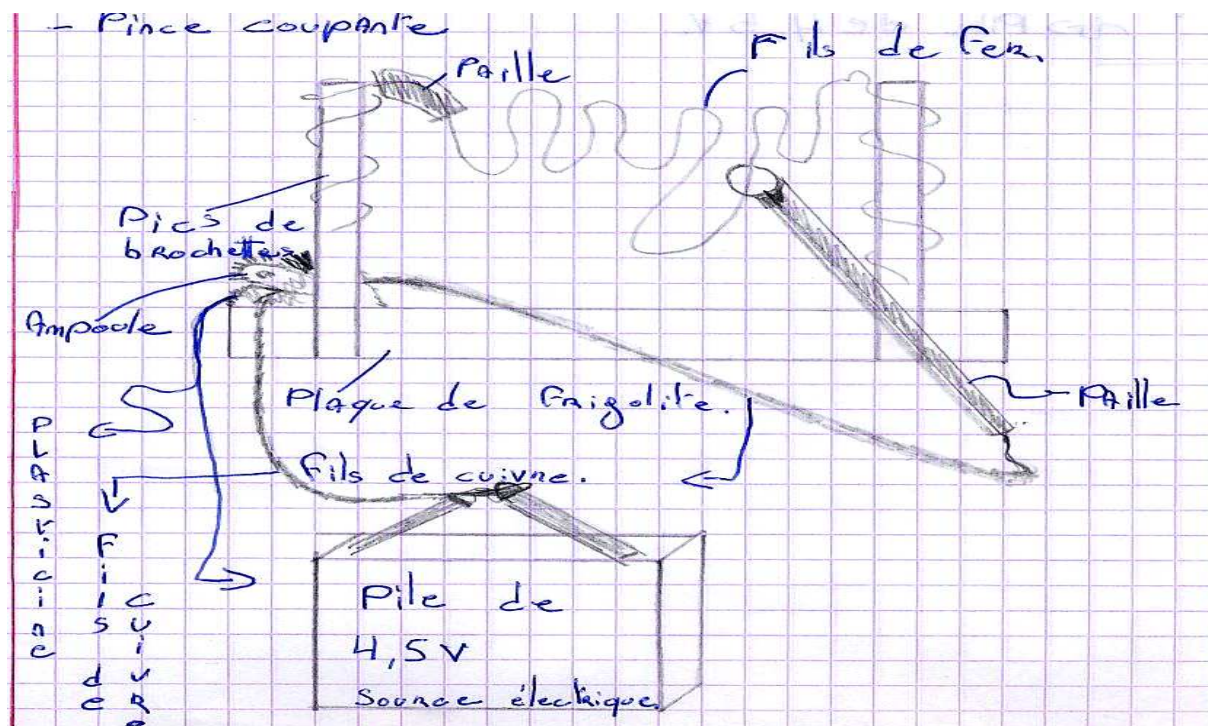 - Pince coupante
Paille
Fils de fer.
Pics de
brochettes
Ampoule
Plaque de frigolite.
Paille
Fils de cuivre.
Plasticine
Fils de
cuivre
Pile de
4,5 V
Source électrique.